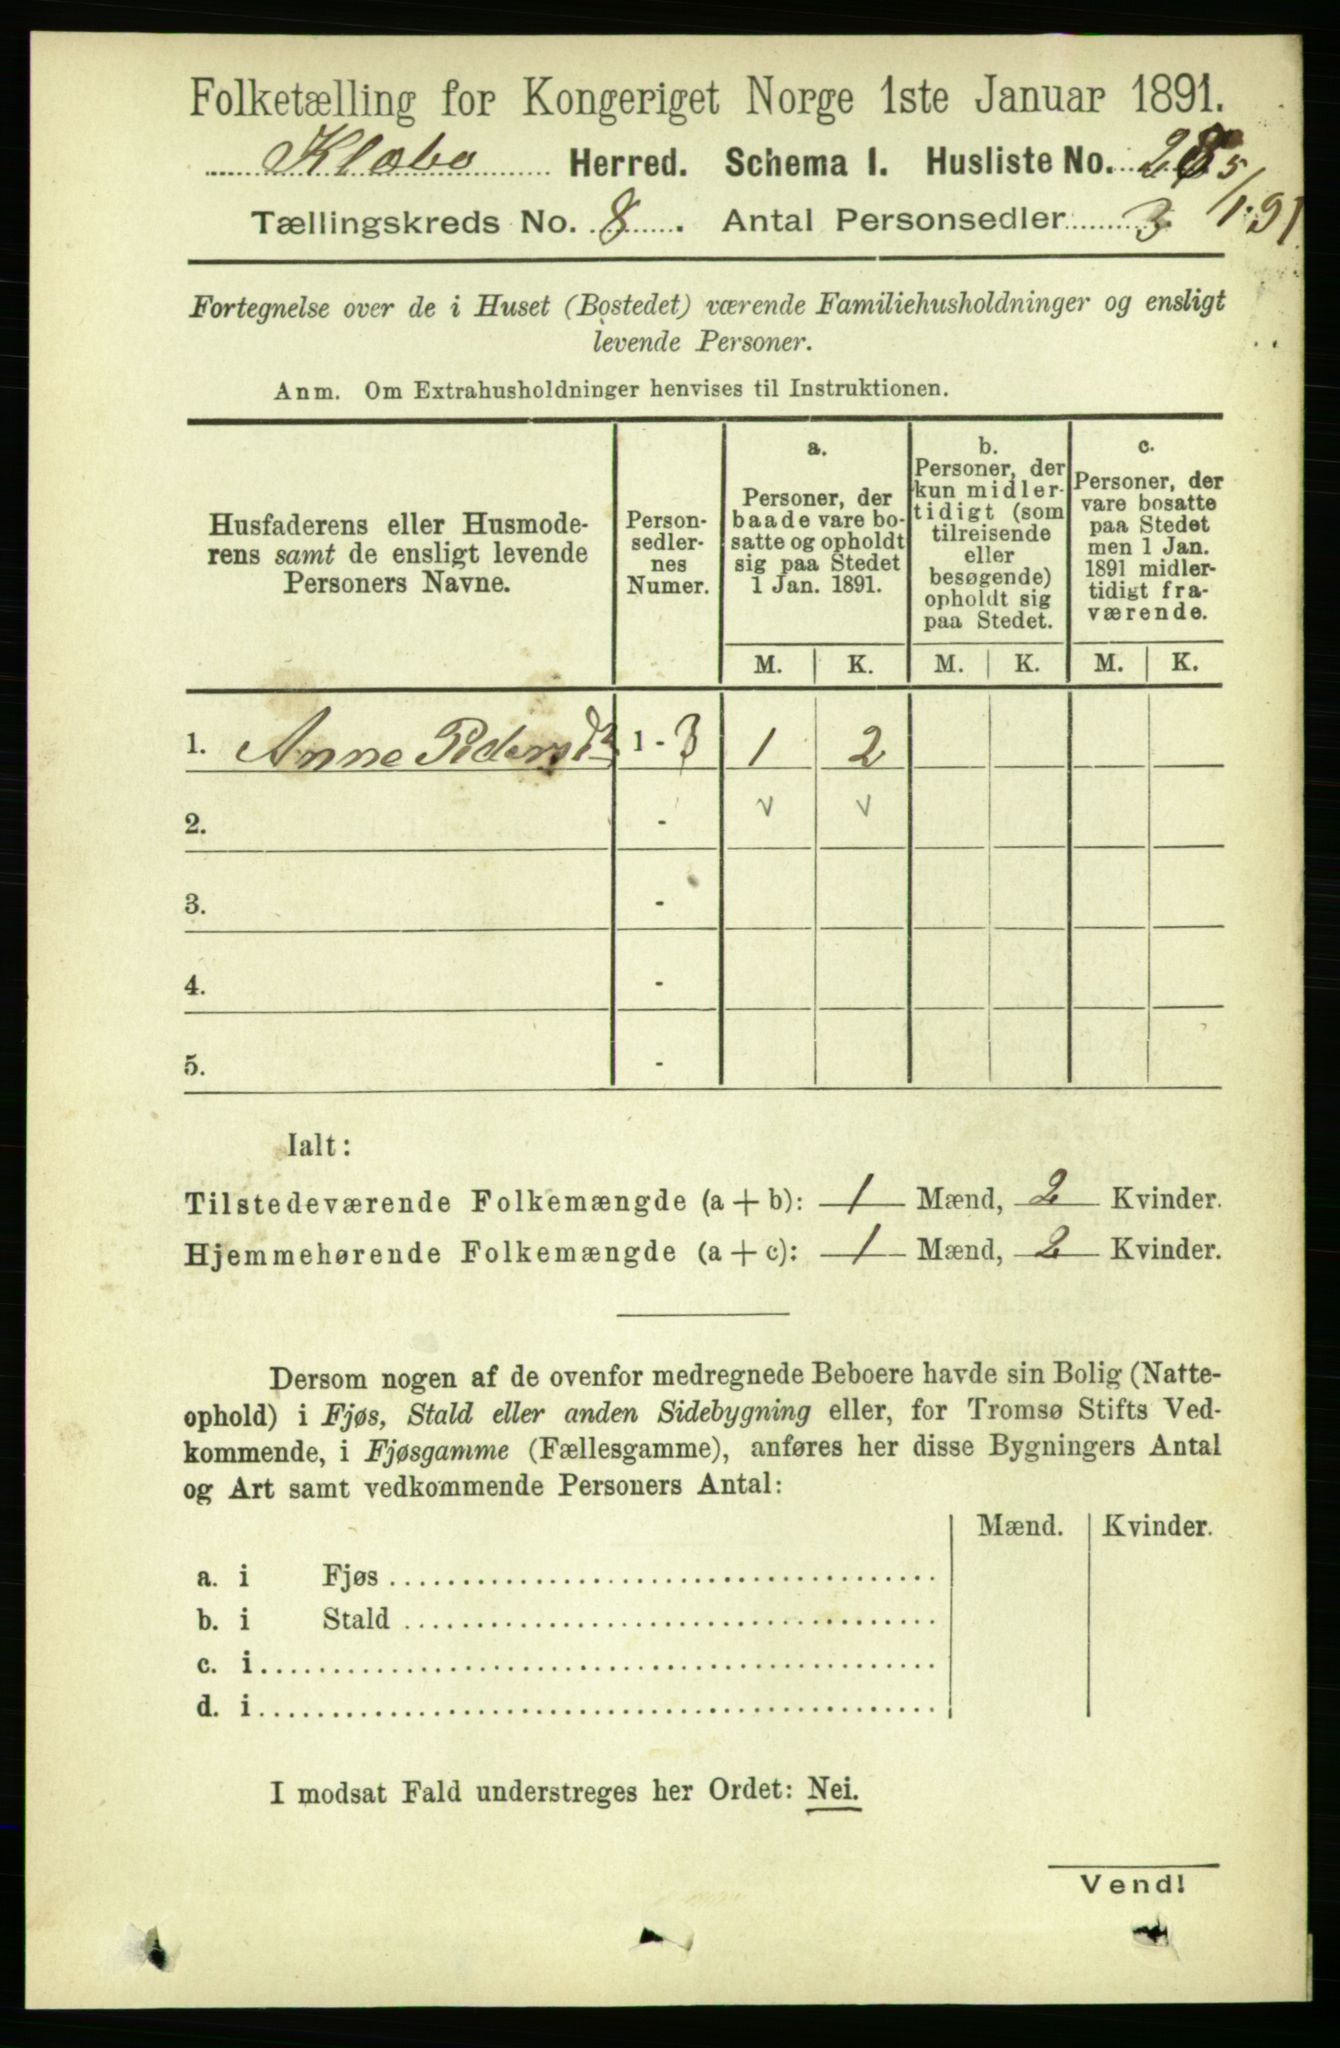 Folketælling for Kongeriget Norge 1ste Januar 1891.
Klæbo Herred. Schema I. Husliste No. 28
5/1. 91
Tællingskreds No. 8. Antal Personsedler 3
Fortegnelse over de i Huset (Bostedet) værende Familiehusholdninger og ensligt
levende Personer.
Anm. Om Extrahusholdninger henvises til Instruktionen.
Husfaderens eller Husmode-
rens samt de ensligt levende
Personers Navne.
Person-
sedler-
nes
Numer.
a.
Personer, der
baade vare bo-
satte og opholdt
sig paa Stedet
1 Jan. 1891.
b.
Personer, der
kun midler-
tidigt (som
tilreisende
eller
besøgende)
opholdt sig
paa Stedet.
c.
Personer, der
vare bosatte
paa Stedet
men 1 Jan.
1891 midler-
tidigt fra-
værende.
M. K. M. K. M. K.
1. Anne Pedersd 1 - 3 1 2
2. - v v
3. -
4. -
5. -
Ialt:
Tilstedeværende Folkemængde (a + b): 1 Mænd, 2 Kvinder.
Hjemmehørende Folkemængde (a + c): 1 Mænd, 2 Kvinder.
Dersom nogen af de ovenfor medregnede Beboere havde sin Bolig (Natte-
ophold) i Fjøs, Stald eller anden Sidebygning eller, for Tromsø Stifts Ved-
kommende, i Fjøsgamme (Fællesgamme), anføres her disse Bygningers Antal
og Art samt vedkommende Personers Antal:
Mænd. Kvinder.
a. i Fjøs
b. i Stald
c. i
d. i
I modsat Fald understreges her Ordet: Nei.
Vend!